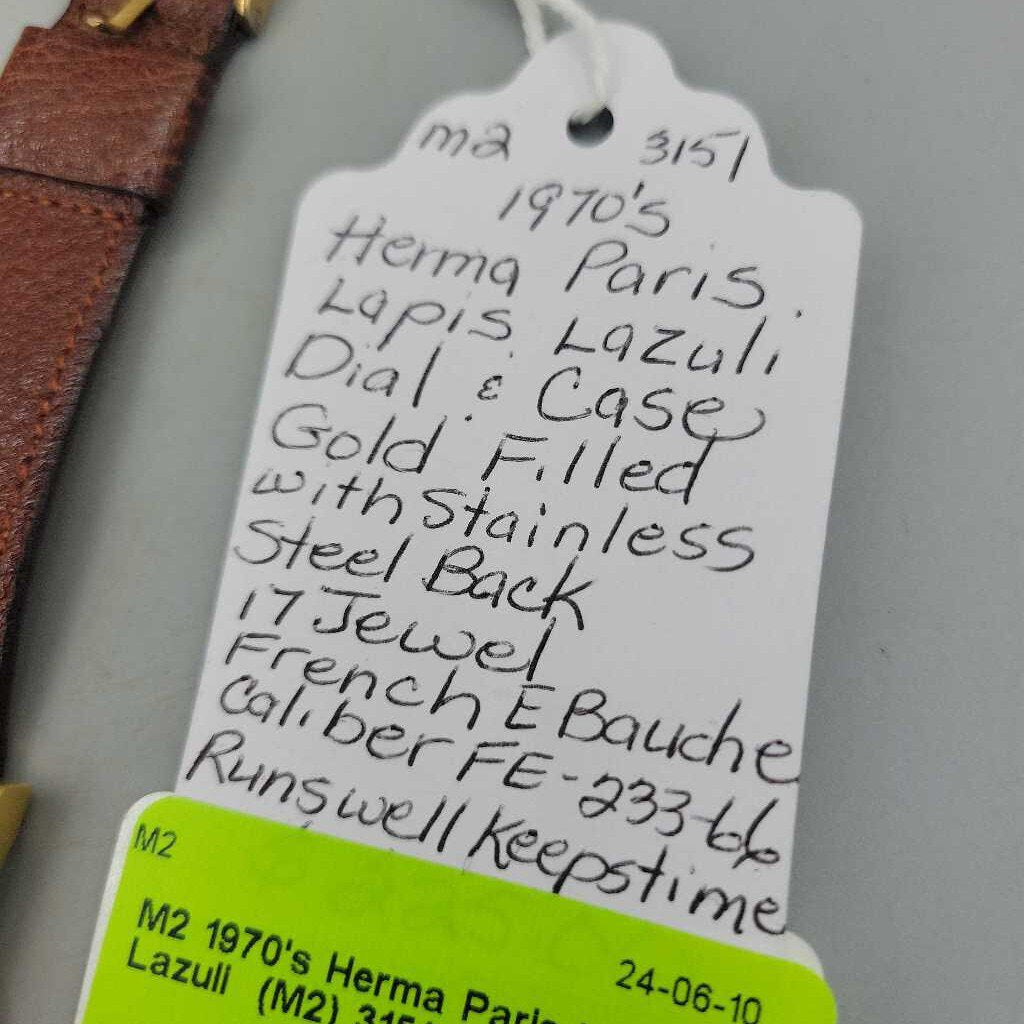 m2 3151
1970's
Herma Paris
Lapis Lazuli
Dial & Case
Gold Filled
with Stainless
Steel Back
17 Jewel
French EBauche
Caliber FE-233-66
Runs well Keeps time
M2
24-06-10
M2 1970's Herma Paris
Lazuli (M2) 3151